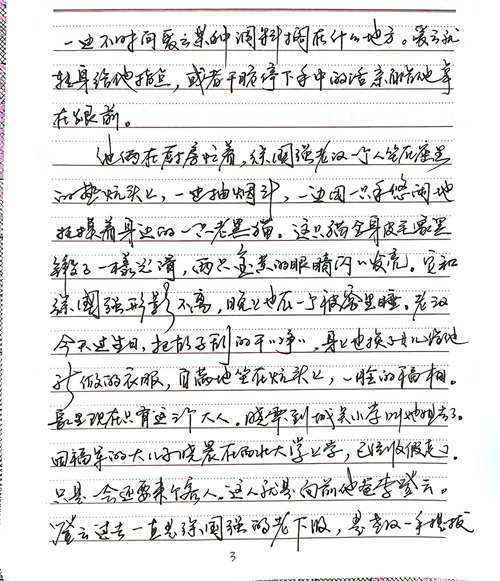 一边不时问爱云某种调料搁在什么地方。爱云就
转身给他指点，或者干脆停下手中的活亲自给他拿
在眼前。
他俩在厨房忙着，徐国强老汉一个人坐在座里
的热炕头上，一边抽烟斗，一边用一只手悠闲地
抚摸着身边的一只老黑猫。这只猫全身皮毛像黑
缎子一样光滑，两只金黄的眼睛闪闪发亮。它和
徐国强形影不离，晚上也在一个被窝里睡。老汉
今天过生日，把胡子刮的干干净净，身上也换了女儿给他
新做的衣服，自满地坐在炕头上，一脸的福相。
家里现在只有这三个大人。晓霞到城关小学叫她姐去了。
田福军的大儿子晓晨在西北大学上学，已经收假走了。
只是一会还要来个客人。这人就是向前他爸李登云。
登云过去一直是徐国强的老下级，是老汉一手提拔
3